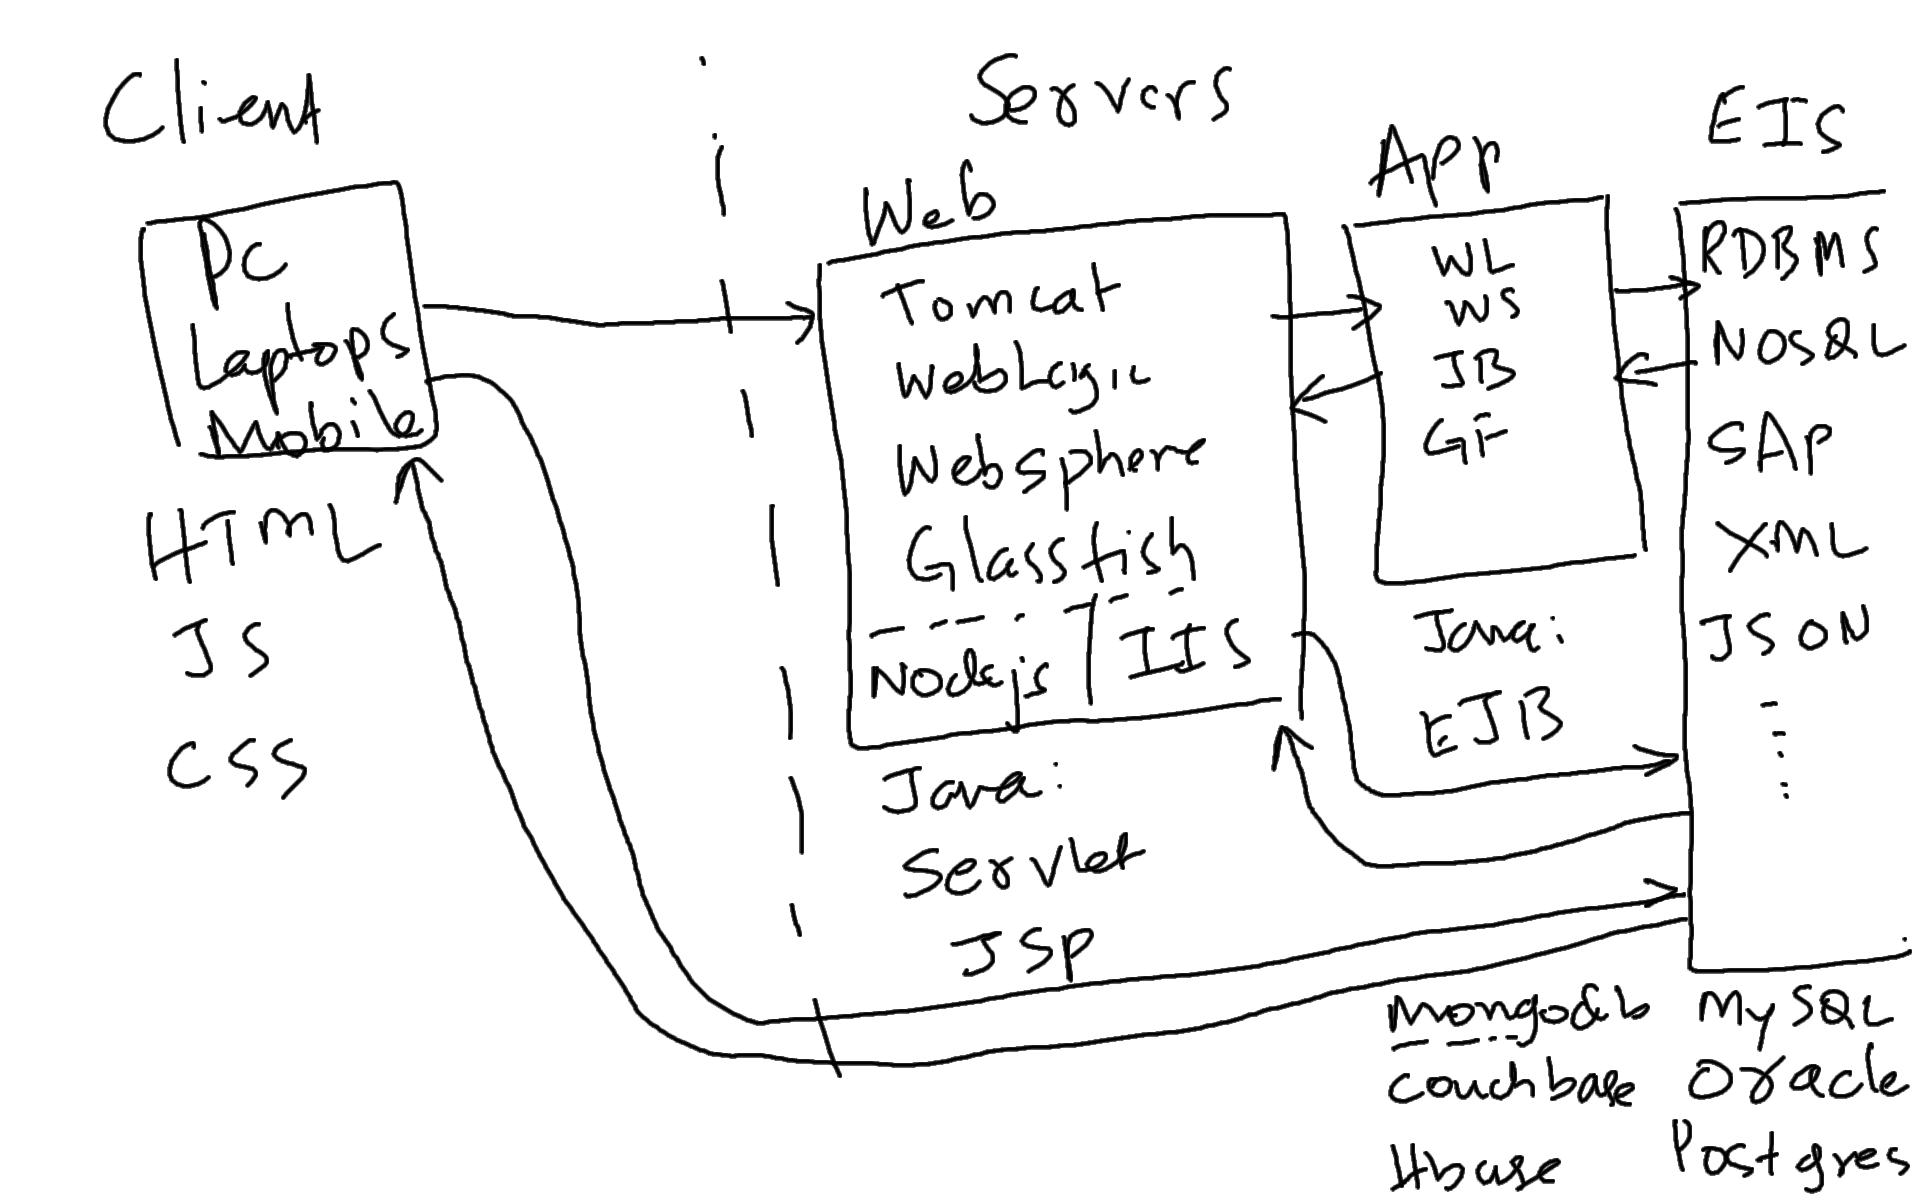 Client
PC
Laptops
Mobile
HTML
JS
CSS
Servers
Web
Tomcat
WebLogic
Websphere
Glassfish
Nodejs / IIS
Java:
Servlet
JSP
App
WL
WS
JB
GF
Java:
EJB
EIS
RDBMS
NOSQL
SAP
XML
JSON
Mongodb
Couchbase
Hbase
MySQL
Oracle
Postgres